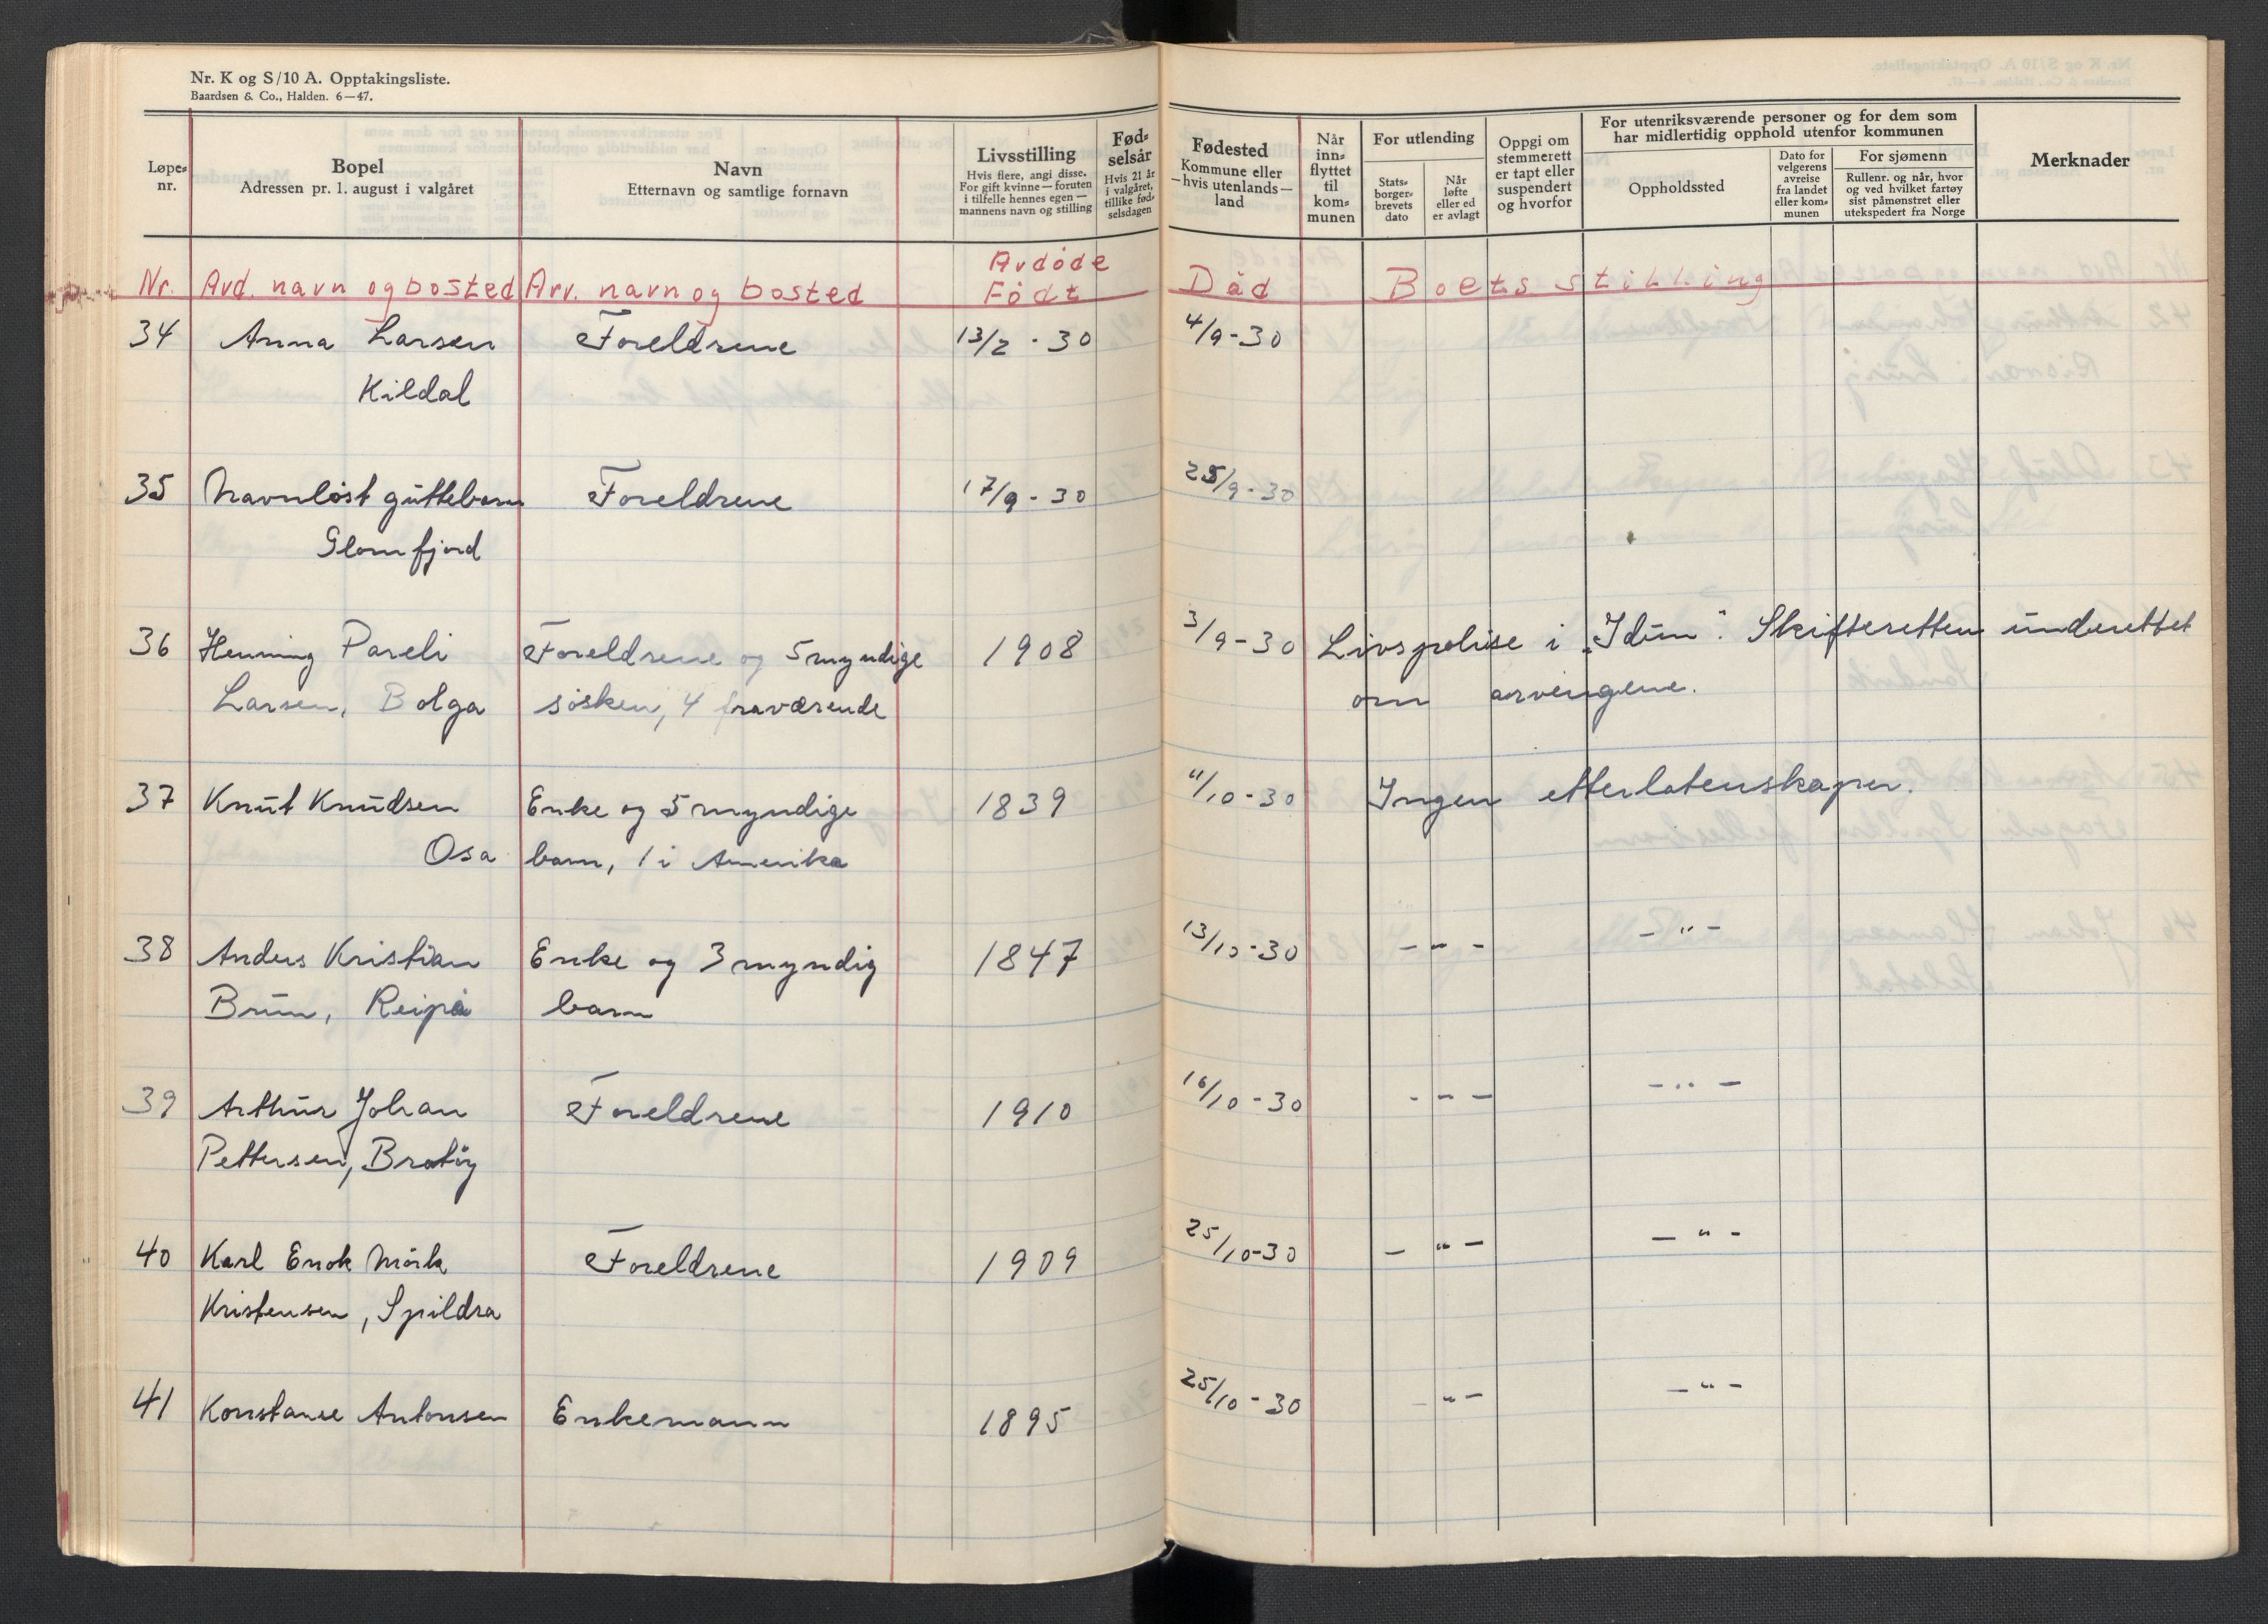 Nr. K og S/10 A. Opptakingsliste.
Baardsen & Co., Halden. 6—47.
Løpe-
nr.
Bopel
Adressen pr. 1. august i valgåret
Navn
Etternavn og samtlige fornavn
Livsstilling
Hvis flere, angi disse.
For gift kvinne — foruten
i tilfelle hennes egen —
mannens navn og stilling
Fød-
selsår
Hvis 21 år
i valgåret,
tillike fød-
selsdagen
Fødested
Kommune eller
—hvis utenlands—
land
Når
inn-
flyttet
til
kom-
munen
For utlending
Stats-
borger-
brevets
dato
Når
løfte
eller ed
er avlagt
Oppgi om
stemmerett
er tapt eller
suspendert
og hvorfor
For utenriksværende personer og for dem som
har midlertidig opphold utenfor kommunen
Oppholdssted
Dato for
velgerens
avreise
fra landet
eller kom-
munen
For sjømenn
Rullenr. og når, hvor
og ved hvilket fartøy
sist påmønstret eller
utekspedert fra Norge
Merknader
Nr. Avd. navn og bosted Arv. navn og bosted Avdøde Født Død Boets stilling
34 Anna Larsen Foreldrene 13/2 - 30 4/9 - 30
Kildal
35 Navnløst guttebarn Foreldrene 17/9 - 30 25/9 - 30
Glomfjord
36 Henning Pareli Foreldrene og 5 myndige 1908 3/9 - 30 Livspolise i "Idun". Skifteretten underettet
Larsen, Bolga søsken, 4 fraværende om arvingene.
37 Knut Knudsen Enke og 5 myndige 1839 11/10 - 30 Ingen etterlatenskaper.
Osa barn, 1 i Amerika
38 Anders Kristian Enke og 3 myndig 1847 13/10 - 30 - - - - " -
Brun, Reipå barn
39 Arthur Johan Foreldrene 1910 16/10 - 30 - - - - " -
Pettersen, Bratøy
40 Karl Enok Mörk Foreldrene 1909 25/10 - 30 - " - - " -
Kristensen, Spildra
41 Konstanse Antonsen Enkemann 1895 25/10 - 30 - " - - " -